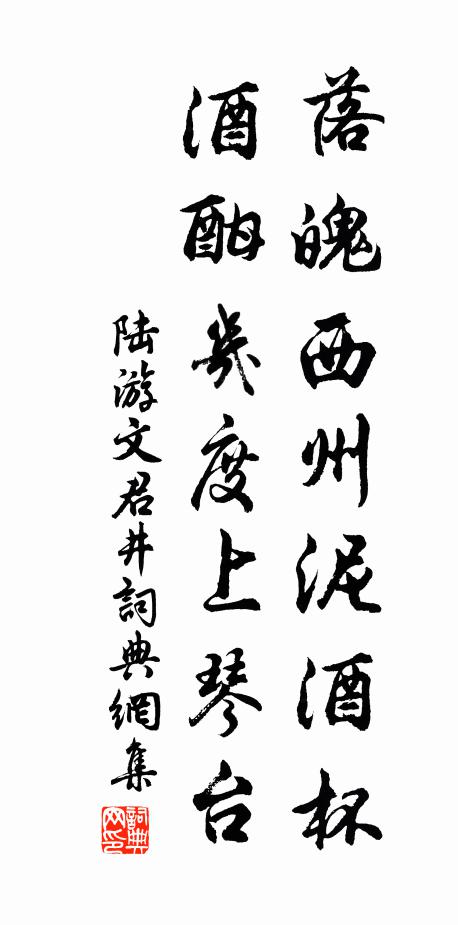 落魄西州泥酒杯
酒酣幾度上琴台
陆游文君井詞典網集
詞典网印